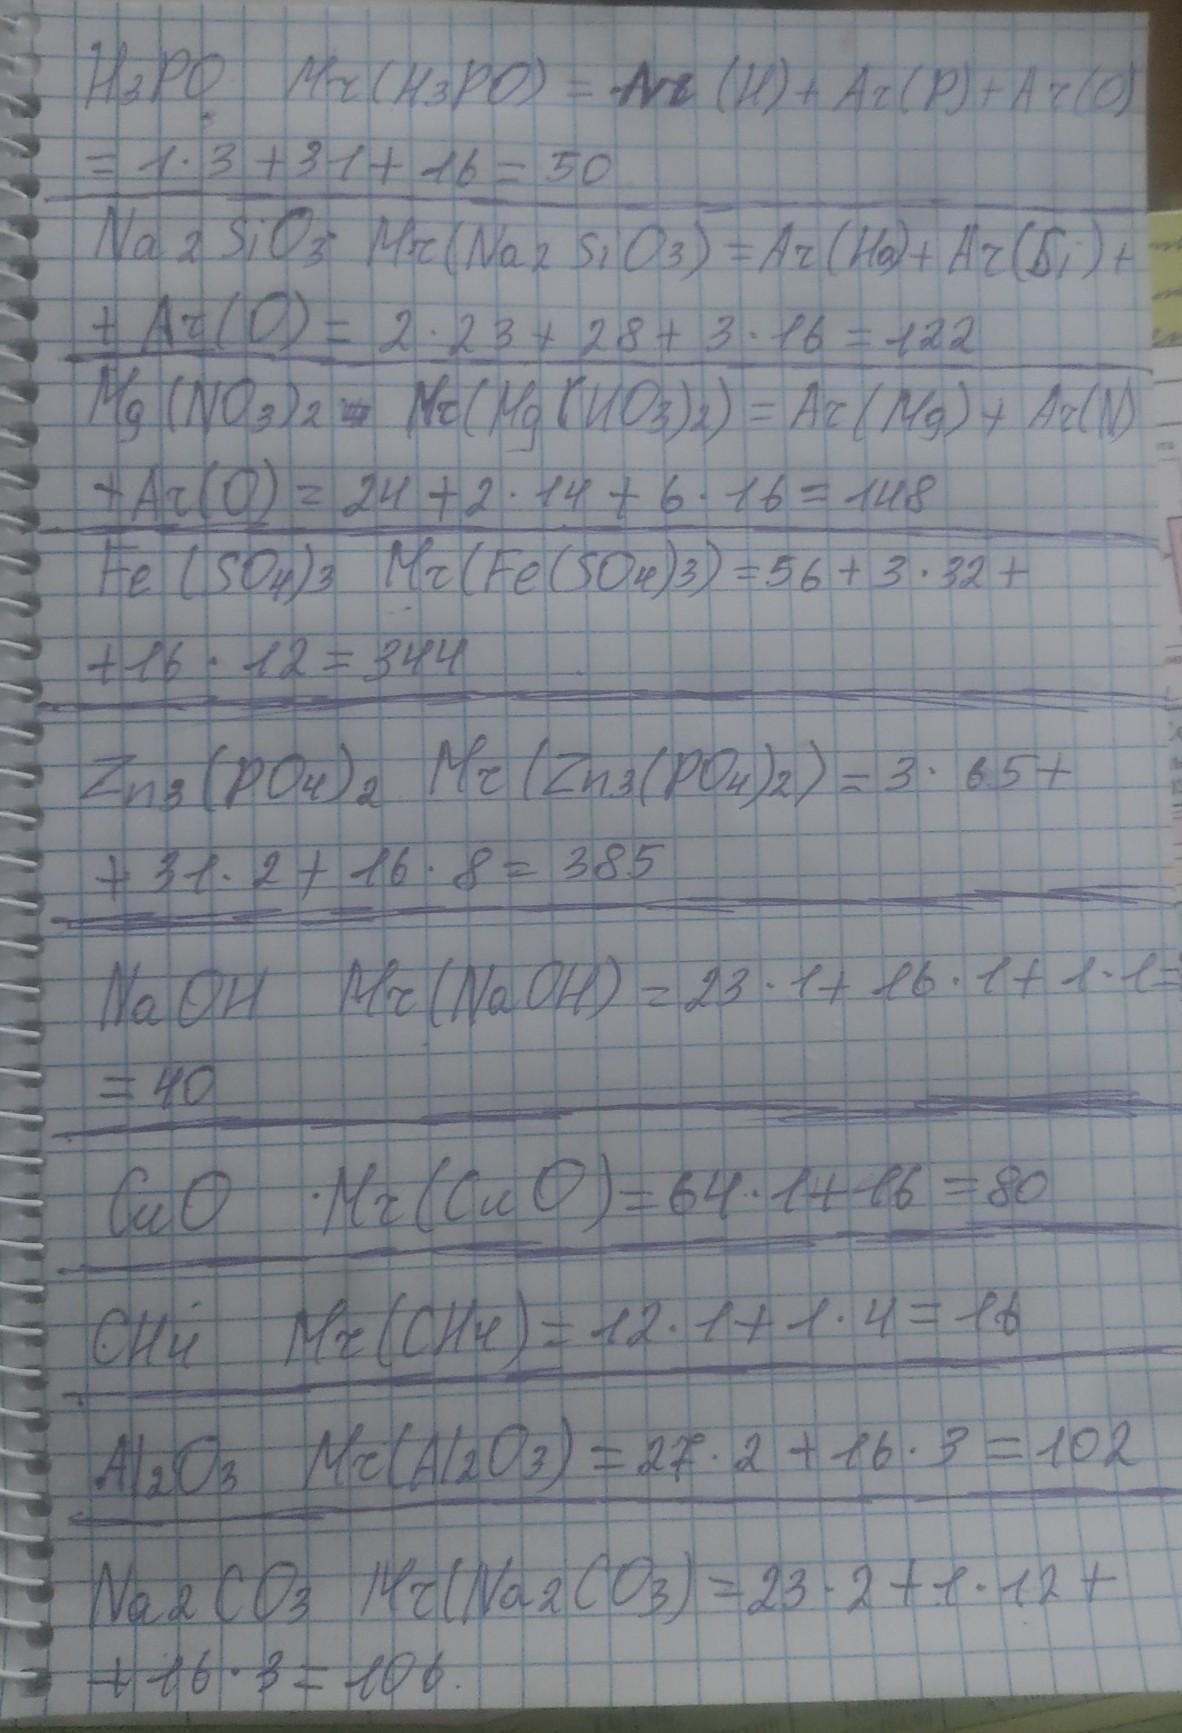 H3PO Mr(H3PO) = Ar (H) + Ar(P) + Ar(O)
= 1·3 + 31 + 16 = 50
Na2SiO3 Mr(Na2SiO3) = Ar(Ha) + Ar(Si) +
+ Ar(O) = 2·23 + 28 + 3·16 = 122
Mg(NO3)2 - Mr(Mg(NO3)2) = Ar(Mg) + Ar(N)
+ Ar(O) = 24 + 2·14 + 6·16 = 148
Fe(SO4)3 Mr(Fe(SO4)3) = 56 + 3·32 +
+ 16·12 = 344
Zn3(PO4)2 Mr(Zn3(PO4)2) = 3·65 +
+ 31·2 + 16·8 = 385
NaOH Mr(NaOH) = 23·1 + 16·1 + 1·1 =
= 40
CuO Mr(CuO) = 64·1 + 16 = 80
CH4 Mr(CH4) = 12·1 + 1·4 = 16
Al2O3 Mr(Al2O3) = 27·2 + 16·3 = 102
Na2CO3 Mr(Na2CO3) = 23·2 + 1·12 +
+ 16·3 = 106.